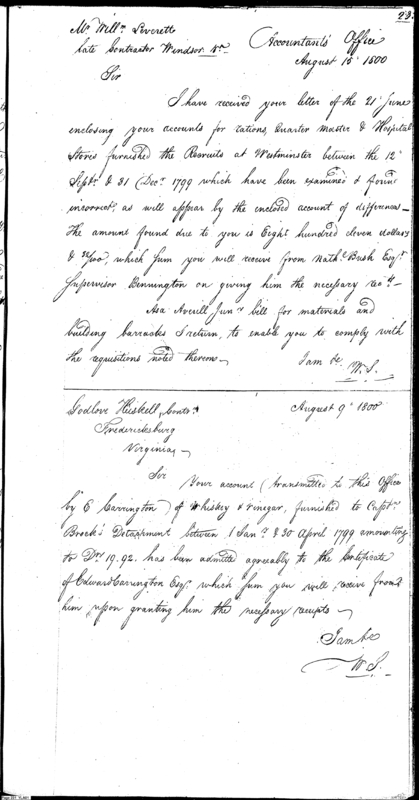 23.
Mr. Willm. Leverett
late Contractor Windsor Vt.
Accountants Office
August 15th 1800
Sir
I have received your letter of the 21st June
enclosing your accounts for rations, Quarter Master & Hospital
Stores furnished the Recruits at Westminster between the 12th
Septr. & 31 Decr. 1799 which have been examined & found
incorrect as will appear by the enclosed account of differences—
The amount found due to you is Eight hundred eleven dollars
& /100, which sum you will receive from Nathl. Bush Esqr.
Supervisor Bennington on giving him the necessary rects.—
Asa Averill Junr. bill for materials and
building barracks I return, to enable you to comply with
the requisitions noted thereon—
I am &c
W. S.
Godlove Heiskell, Contr.
Fredericksburg
Virginia
August 9th 1800
Sir
Your account (transmitted to this Office
by E Carrington) of Whiskey & Vinegar, furnished to Captn.
Brock's Detachment between 1 Jany. & 30 April 1799 amounting
to Drs. 19.92. has been admitted agreeably to the Certificate
of Edward Carrington Esqr. which sum you will receive from
him, upon granting him the necessary receipts—
I am &c
W. S.